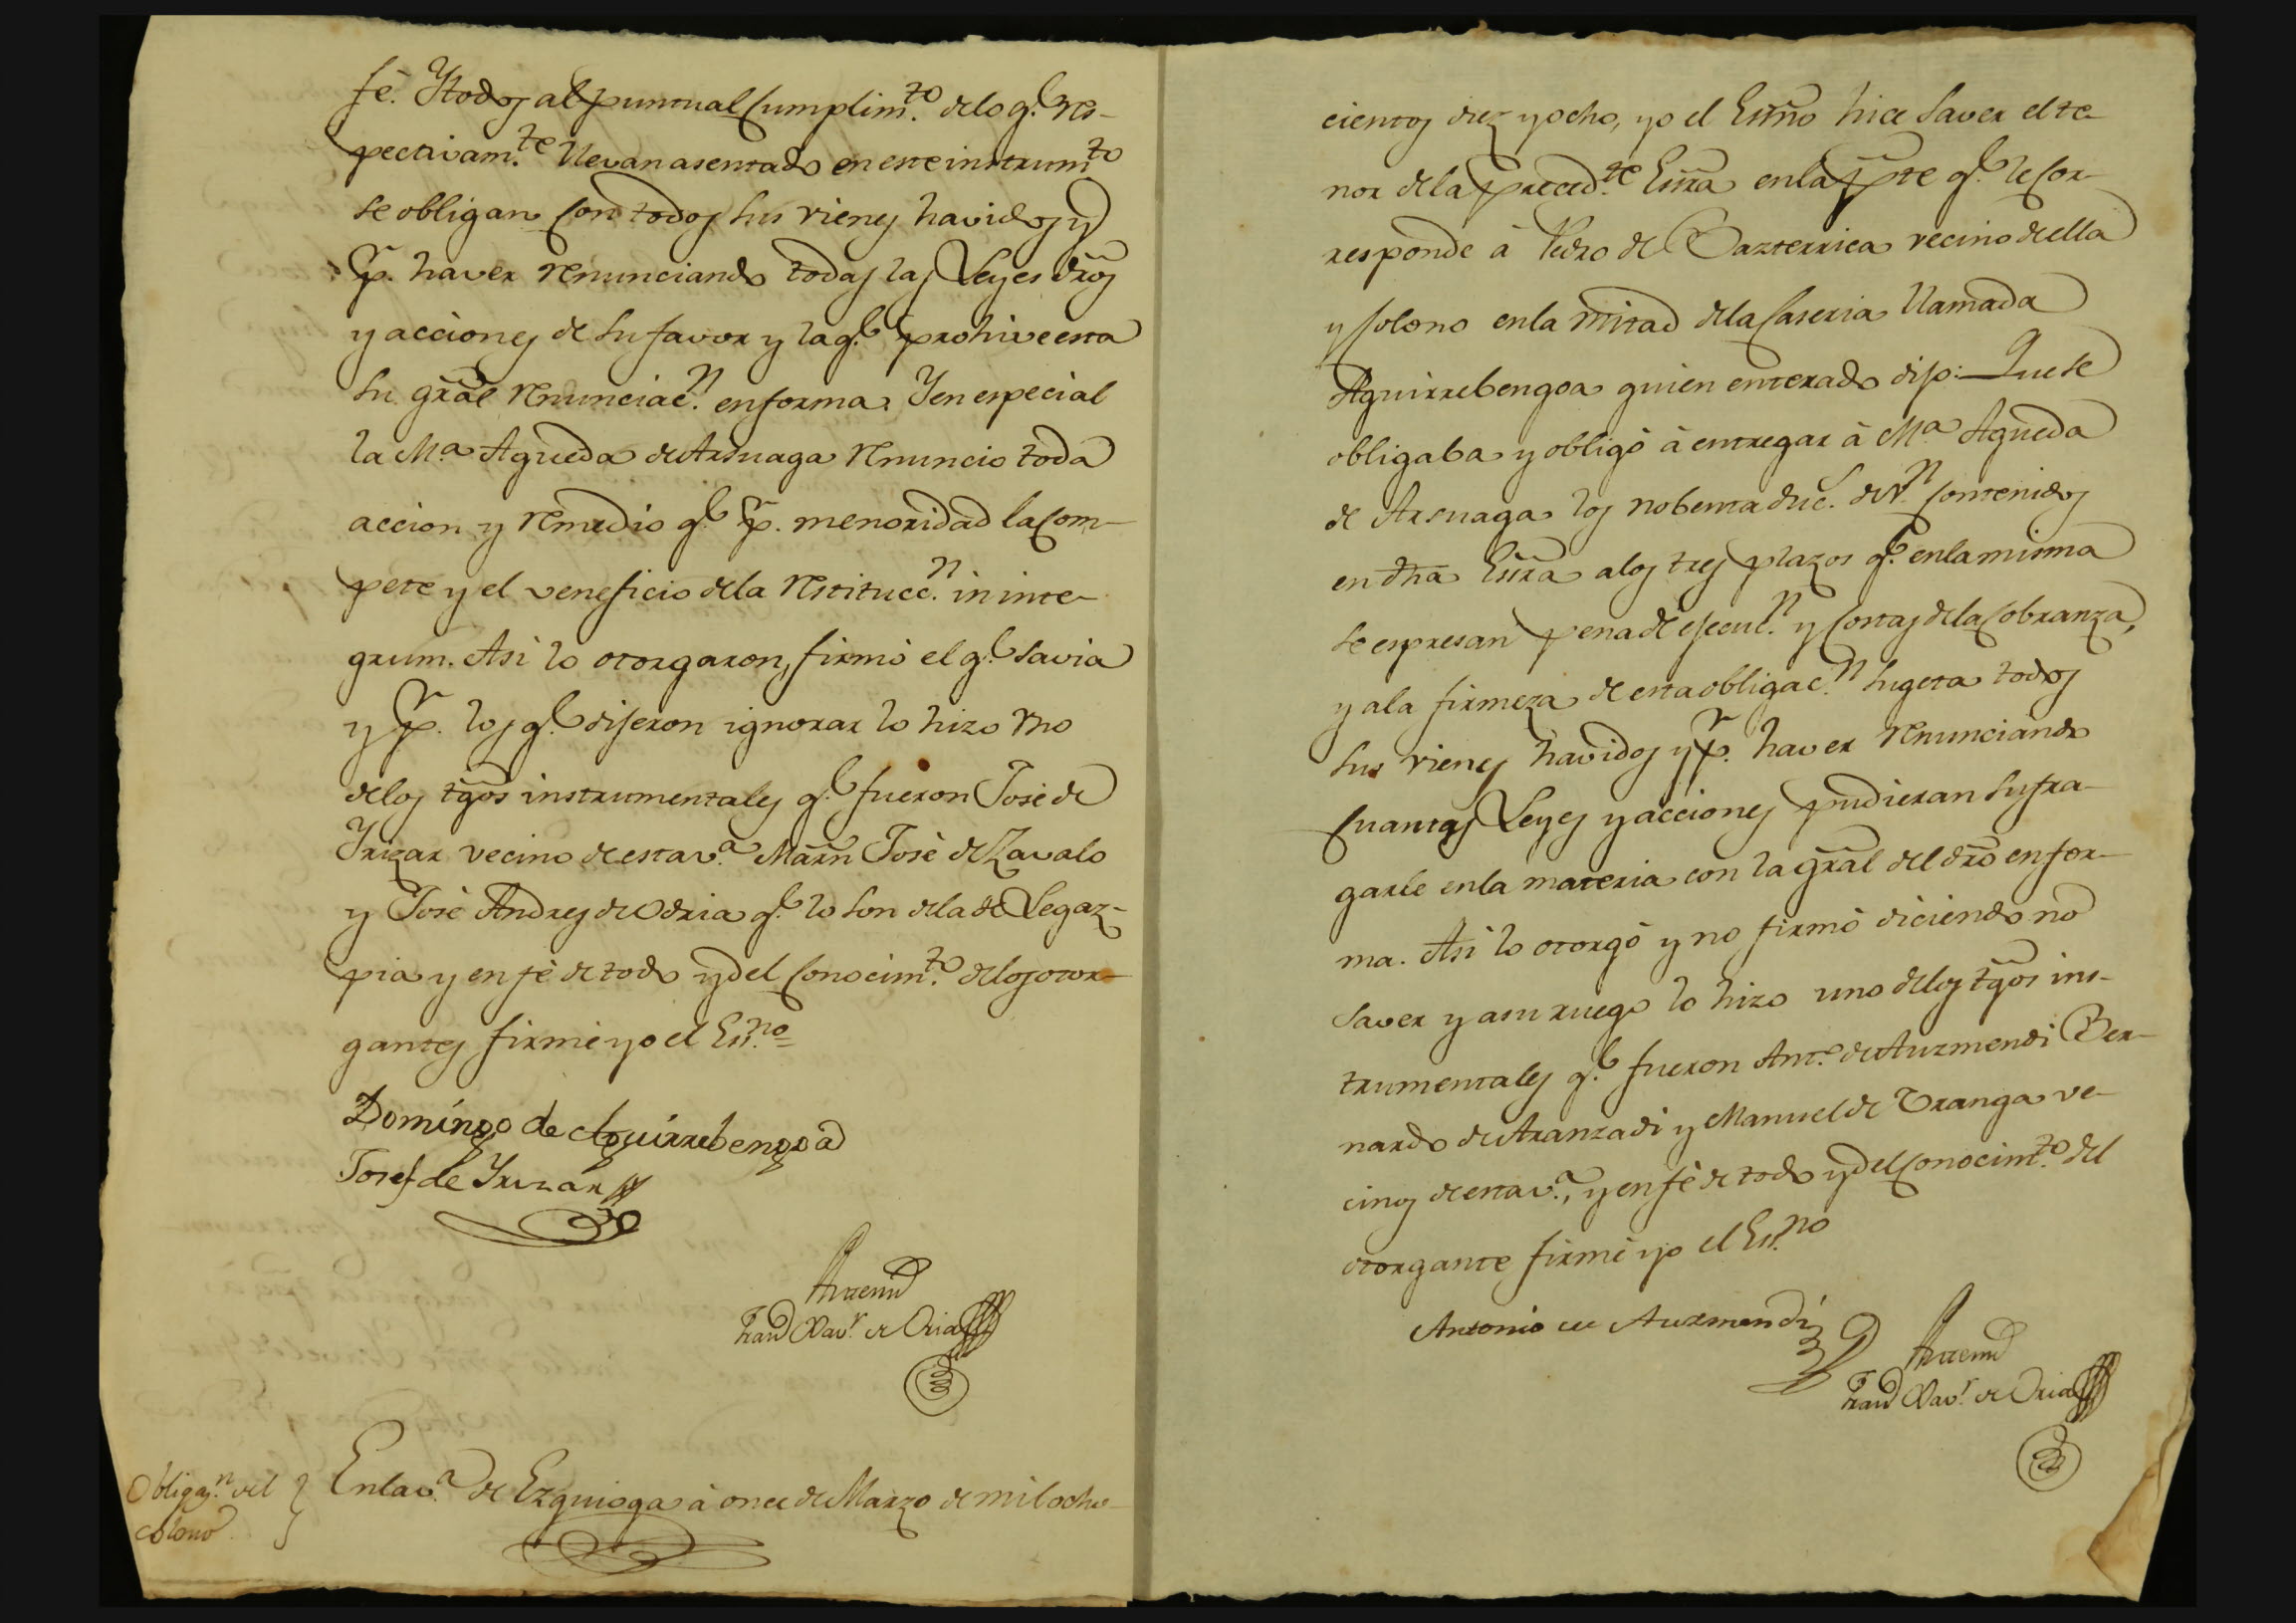 fé. Y todos al puntual Cumplim.to de lo q.e res-
pectivam.te llevan asentado en este instrum.to
se obligan con todos sus vienes havidos y
p.r haver renunciando todas las Leyes dros
y acciones de su favor y la q.e prohive esta
su gral renunciac.n en forma. Y en especial
la M.a Agueda de Arsuaga renuncio toda
accion y remedio q.e p.r menoridad la com-
pete y el veneficio de la restitucc.n in inte-
grum. Asi lo otorgaron, firmó el q.e savia
y p.r los q.e dijeron ignorar lo hizo vno
de los tgos instrumentales q.e fueron José de
Yrizar vecino de esta v.a Marn José de Zavalo
y José Andres de Odria q.e lo son de la de Legaz-
pia y en fé de todo y del Conocim.to de los otor-
gantes firmé yo el Es.no =
Domingo de Aguirrebengoa
Josef de Yrizar
Antemi
Fran.co Xav.r de Oria
Obligaz.n del
colono
En la v.a de Ezquioga á once de Marzo de mil ocho-
cientos diez y ocho, yo el Essno hice saver el te-
nor de la preced.te Essra en la pte q.e le cor-
responde á Pedro de Bazterrica vecino de ella
y Colono en la mitad de la Caseria llamada
Aguirrebengoa quien enterado dijo: Que se
obligaba y obligó á entregar á M.a Agueda
de Arsuaga los nobenta duc.s de v.n contenidos
en dha Essra a los tres plazos q.e en la misma
se expresan pena de ejecuc.n y costas de la cobranza,
y a la firmeza de esta obligac.n sugeta todos
sus vienes havidos y p.r haver renunciando
Cuantas Leyes y acciones pudieran sufra-
garle en la materia con la gral del dro en for-
ma. Asi lo otorgó y no firmó diciendo no
saver y a su ruego lo hizo uno de los tgos ins-
trumentales q.e fueron Ant.o de Auzmendi Ber-
nardo de Aranzadi y Manuel de Vranga ve-
cinos de esta v.a, y en fé de todo y del conocim.to del
otorgante firmé yo el Es.no
Antonio de Auzmendi
Antemi
Fran.co Xav.r de Oria